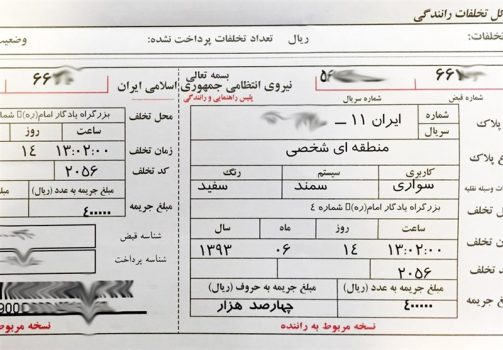 ئل تخلفات رانندگی
تخلفات: ریال تعداد تخلفات پرداخت شده: وضعیت
بسمه تعالی
نیروی انتظامی جمهوری اسلامی ایران
پلیس راهنمایی و رانندگی
شماره قبض
شماره سریال
پلاک شماره سریال ایران ۱۱ ــ
پلاک منطقه ای شخصی
وسیله نقلیه
کاربری سیستم رنگ
سواری سمند سفید
تخلف بزرگراه یادگار امام(ره) شماره ٤
ساعت روز ماه سال
ن تخلف ۱۳:۰۲:۰۰ ۱۴ ۰۶ ۱۳۹۳
تخلف ۲۰۵۶
مبلغ جریمه به عدد (ریال) مبلغ جریمه به حروف (ریال)
جریمه ۴۰۰۰۰۰ چهارصد هزار
نسخه مربوط به راننده
محل تخلف بزرگراه یادگار امام(ره) شماره
ساعت روز
زمان تخلف ۱۳:۰۲:۰۰ ۱۴
کد تخلف ۲۰۵۶
مبلغ جریمه به عدد (ریال)
مبلغ جریمه ۴۰۰۰۰۰
شناسه قبض
شناسه پرداخت
نسخه مربوط